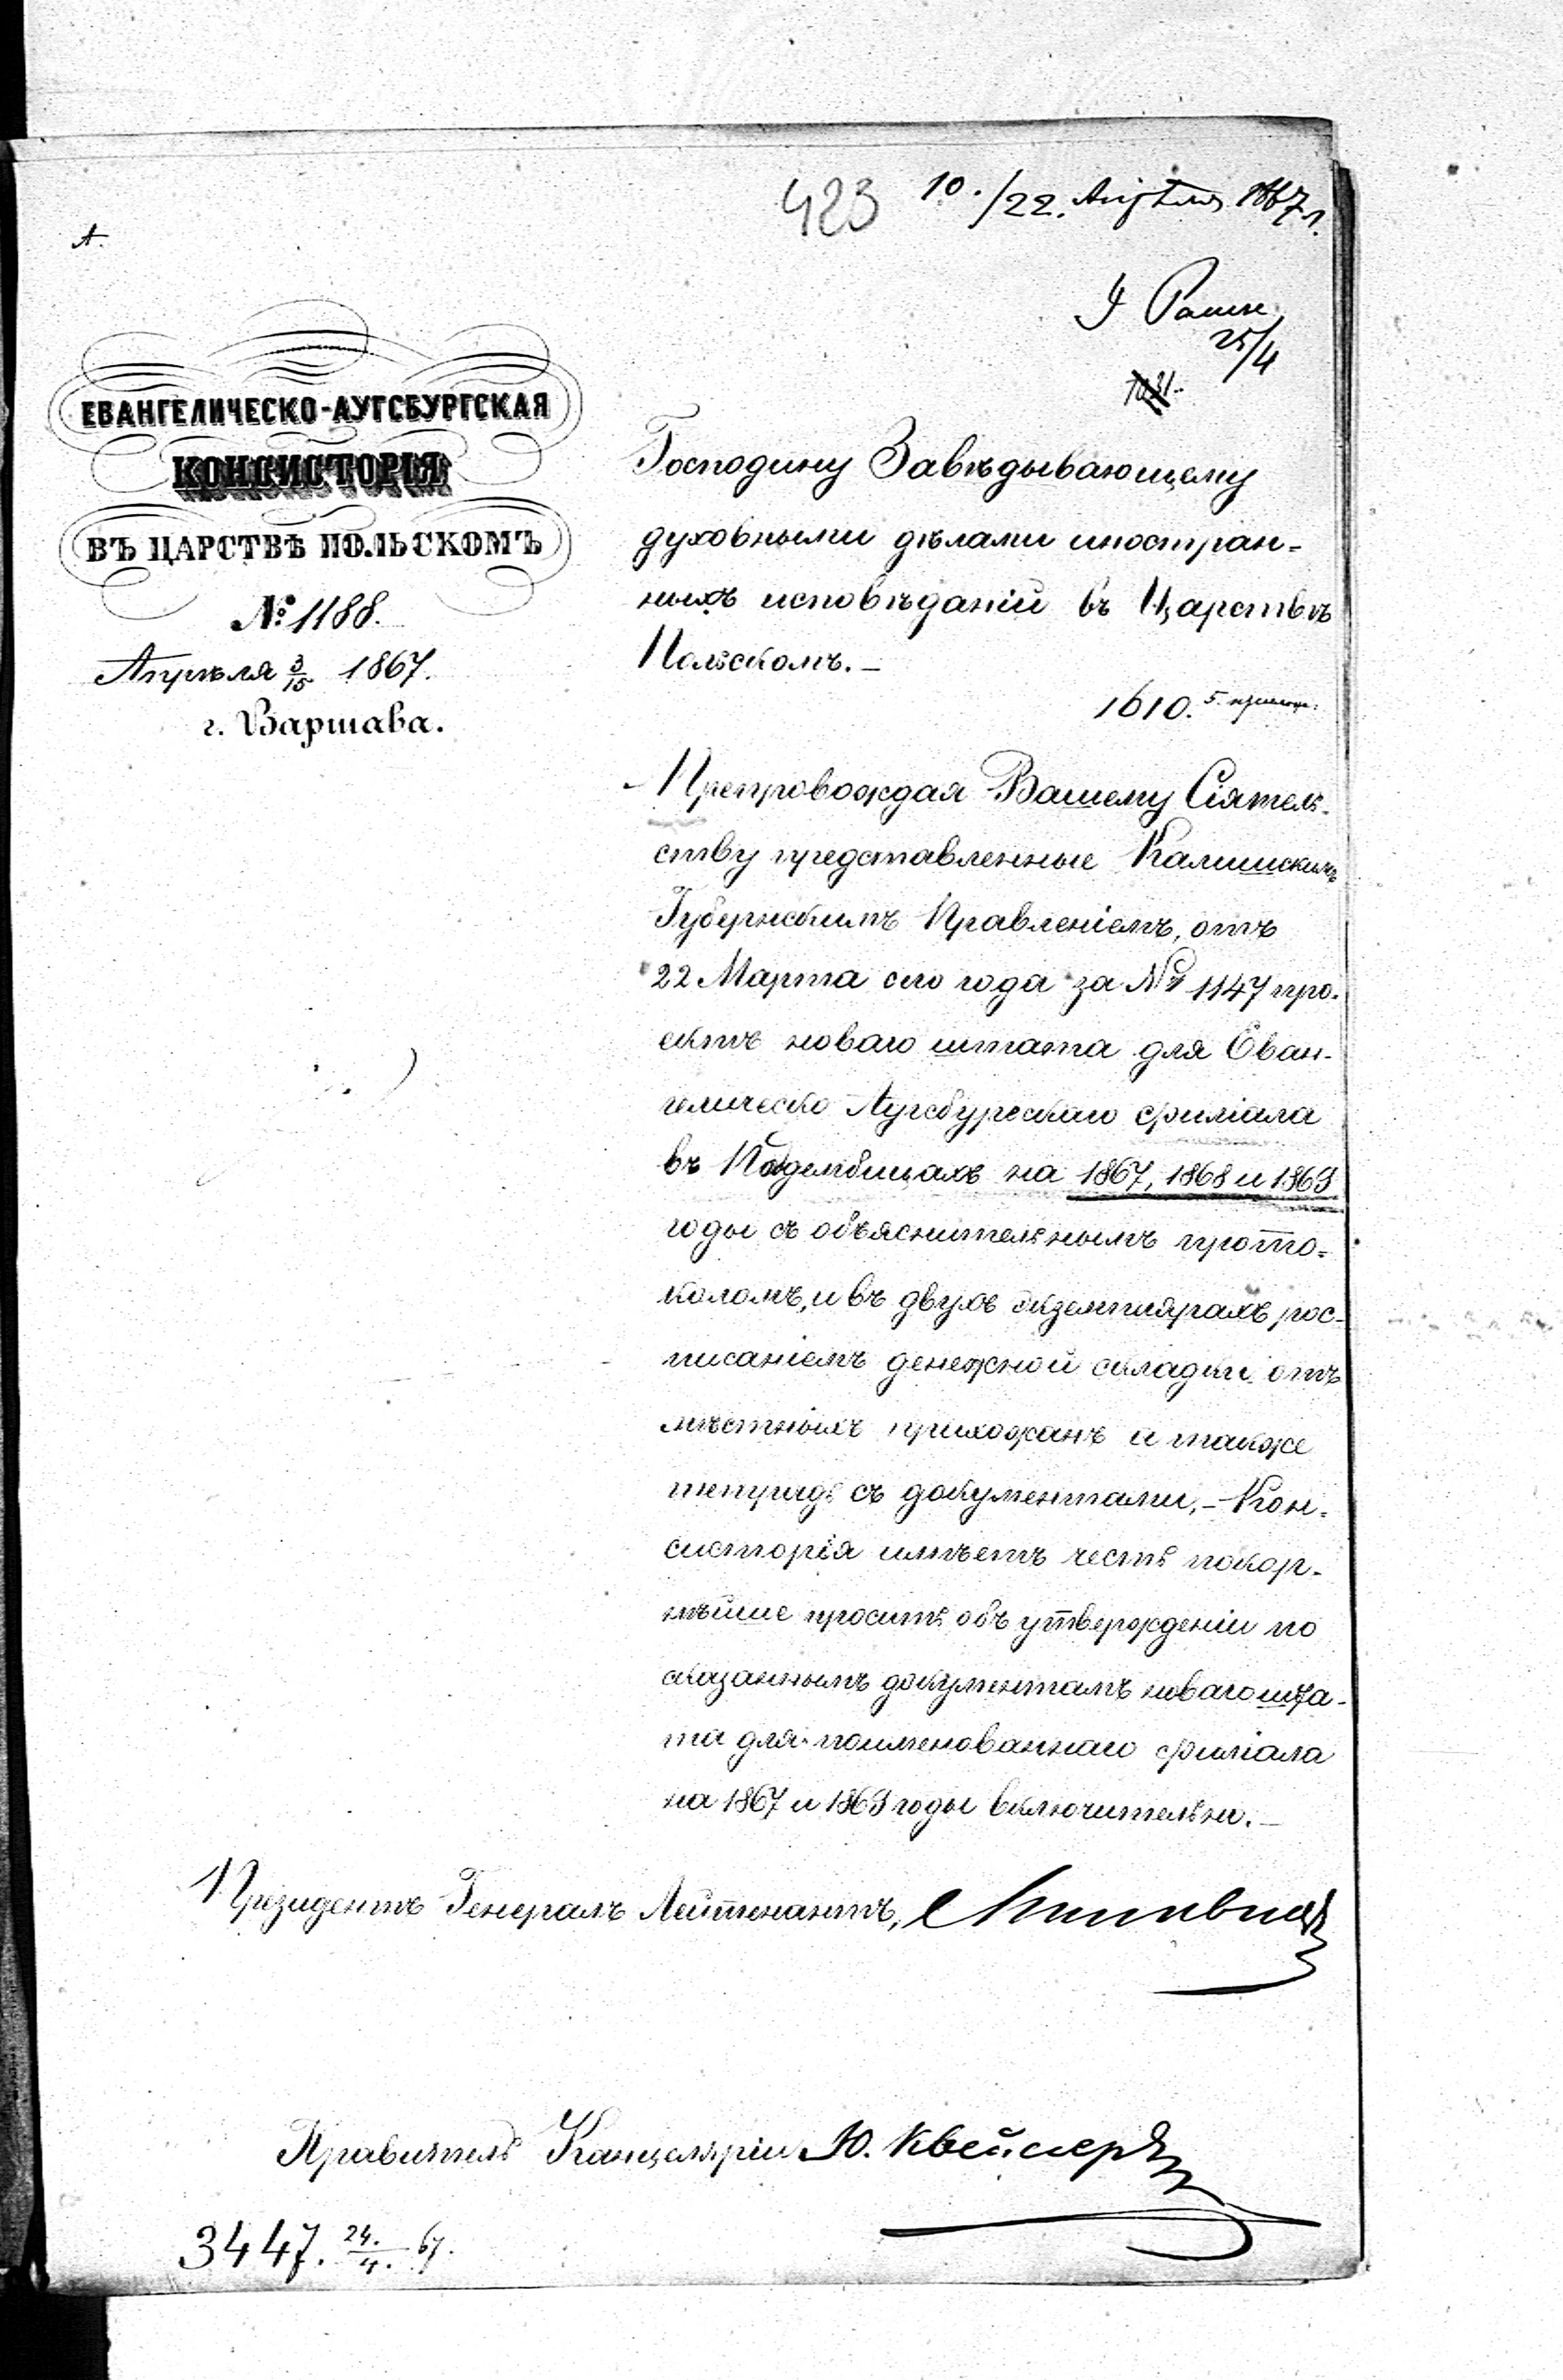 423 10./22. Апрѣля 1867 г.
А.
25/4
ЕВАНГЕЛИЧЕСКО-АУГСБУРГСКАЯ
КОНСИСТОРІЯ
ВЪ ЦАРСТВѢ ПОЛЬСКОМЪ
№ 1188.
Апрѣля 3/15 1867.
г. Варшава.
Господину Завѣдывающему
духовными дѣлами иностран-
ныхъ исповѣданій въ Царствѣ
Польскомъ.-
1610. 5.
Препровождая Вашему Сіятель-
ству представленные Калишскимъ
Губернскимъ Правленіемъ, отъ
22 Марта сего года за № 1147 про-
ектъ новаго штата для Еван-
гелическо Аугсбургскаго филіала
въ Поддембицахъ на 1867, 1868 и 1869
годы съ объяснительнымъ прото-
коломъ, и въ двухъ экземплярахъ рос-
писаніемъ денежной складки отъ
мѣстныхъ прихожанъ а также
тетрадь съ документами,- Кон-
систорія имѣетъ честь покор-
нѣйше просить объ утвержденіи по
сказаннымъ документамъ новаго шта-
та для поименованнаго филіала
на 1867 и 1869 годы включительно.-
Президентъ Генералъ Лейтенантъ,
Правитель Канцеляріи Ю.
3447. 24./4. 67.